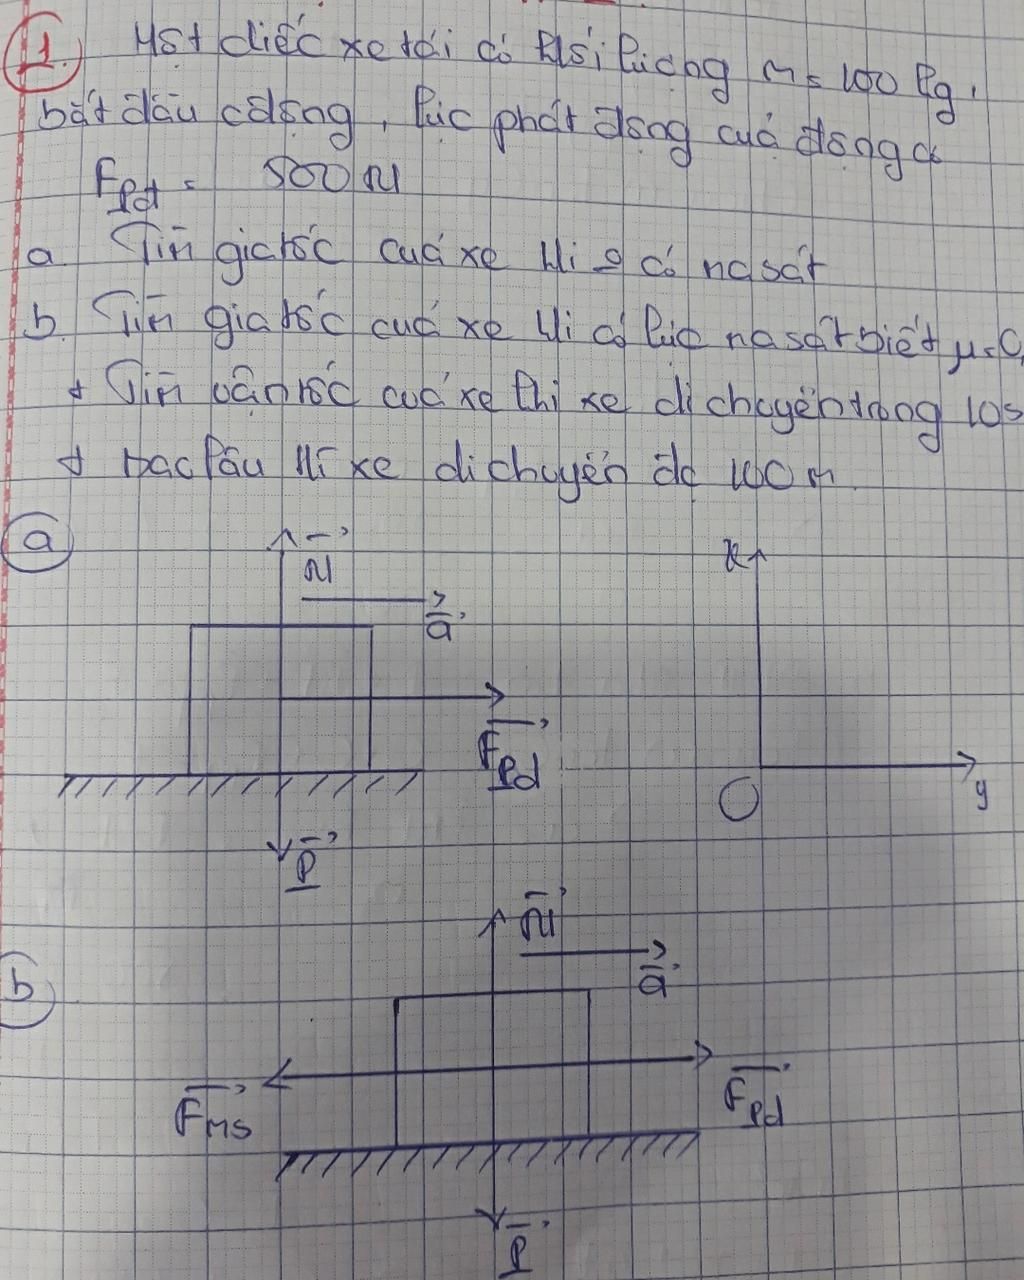 1. Một chiếc xe tải có khối lượng m = 100 kg,
bắt đầu cđộng, lực phát động của động cơ
Fpd = 500 N
a Tính gia tốc của xe khi ko có ma sát
b. Tính gia tốc của xe khi có lực ma sát biết μ = 0,
+ Tính vận tốc của xe khi xe di chuyển trong 10s
+ bao lâu thì xe di chuyển đc 100m
a
N
a
Fpd
P
x
O
y
b
N
a
Fms
Fpd
P